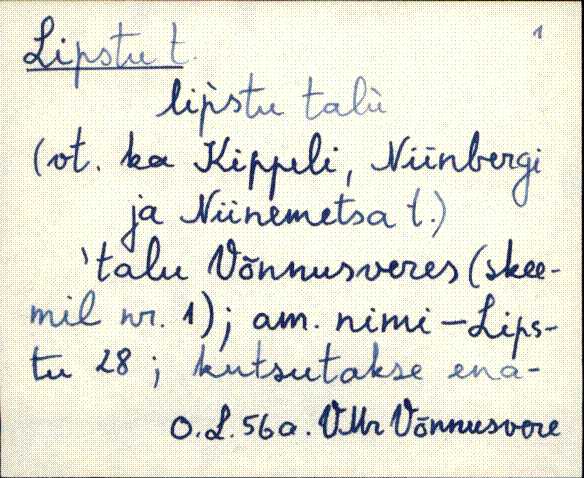 Lipstu t. 1
lip̀stu talù
(vt. ka Kippeli, Niinbergi
ja Niinemetsa t.)
'talu Võnnusveres (skee-
mil nr. 1); am. nimi – Lips-
tu 28; kutsutakse ena-
O.L. 56a. VMr Võnnusvere